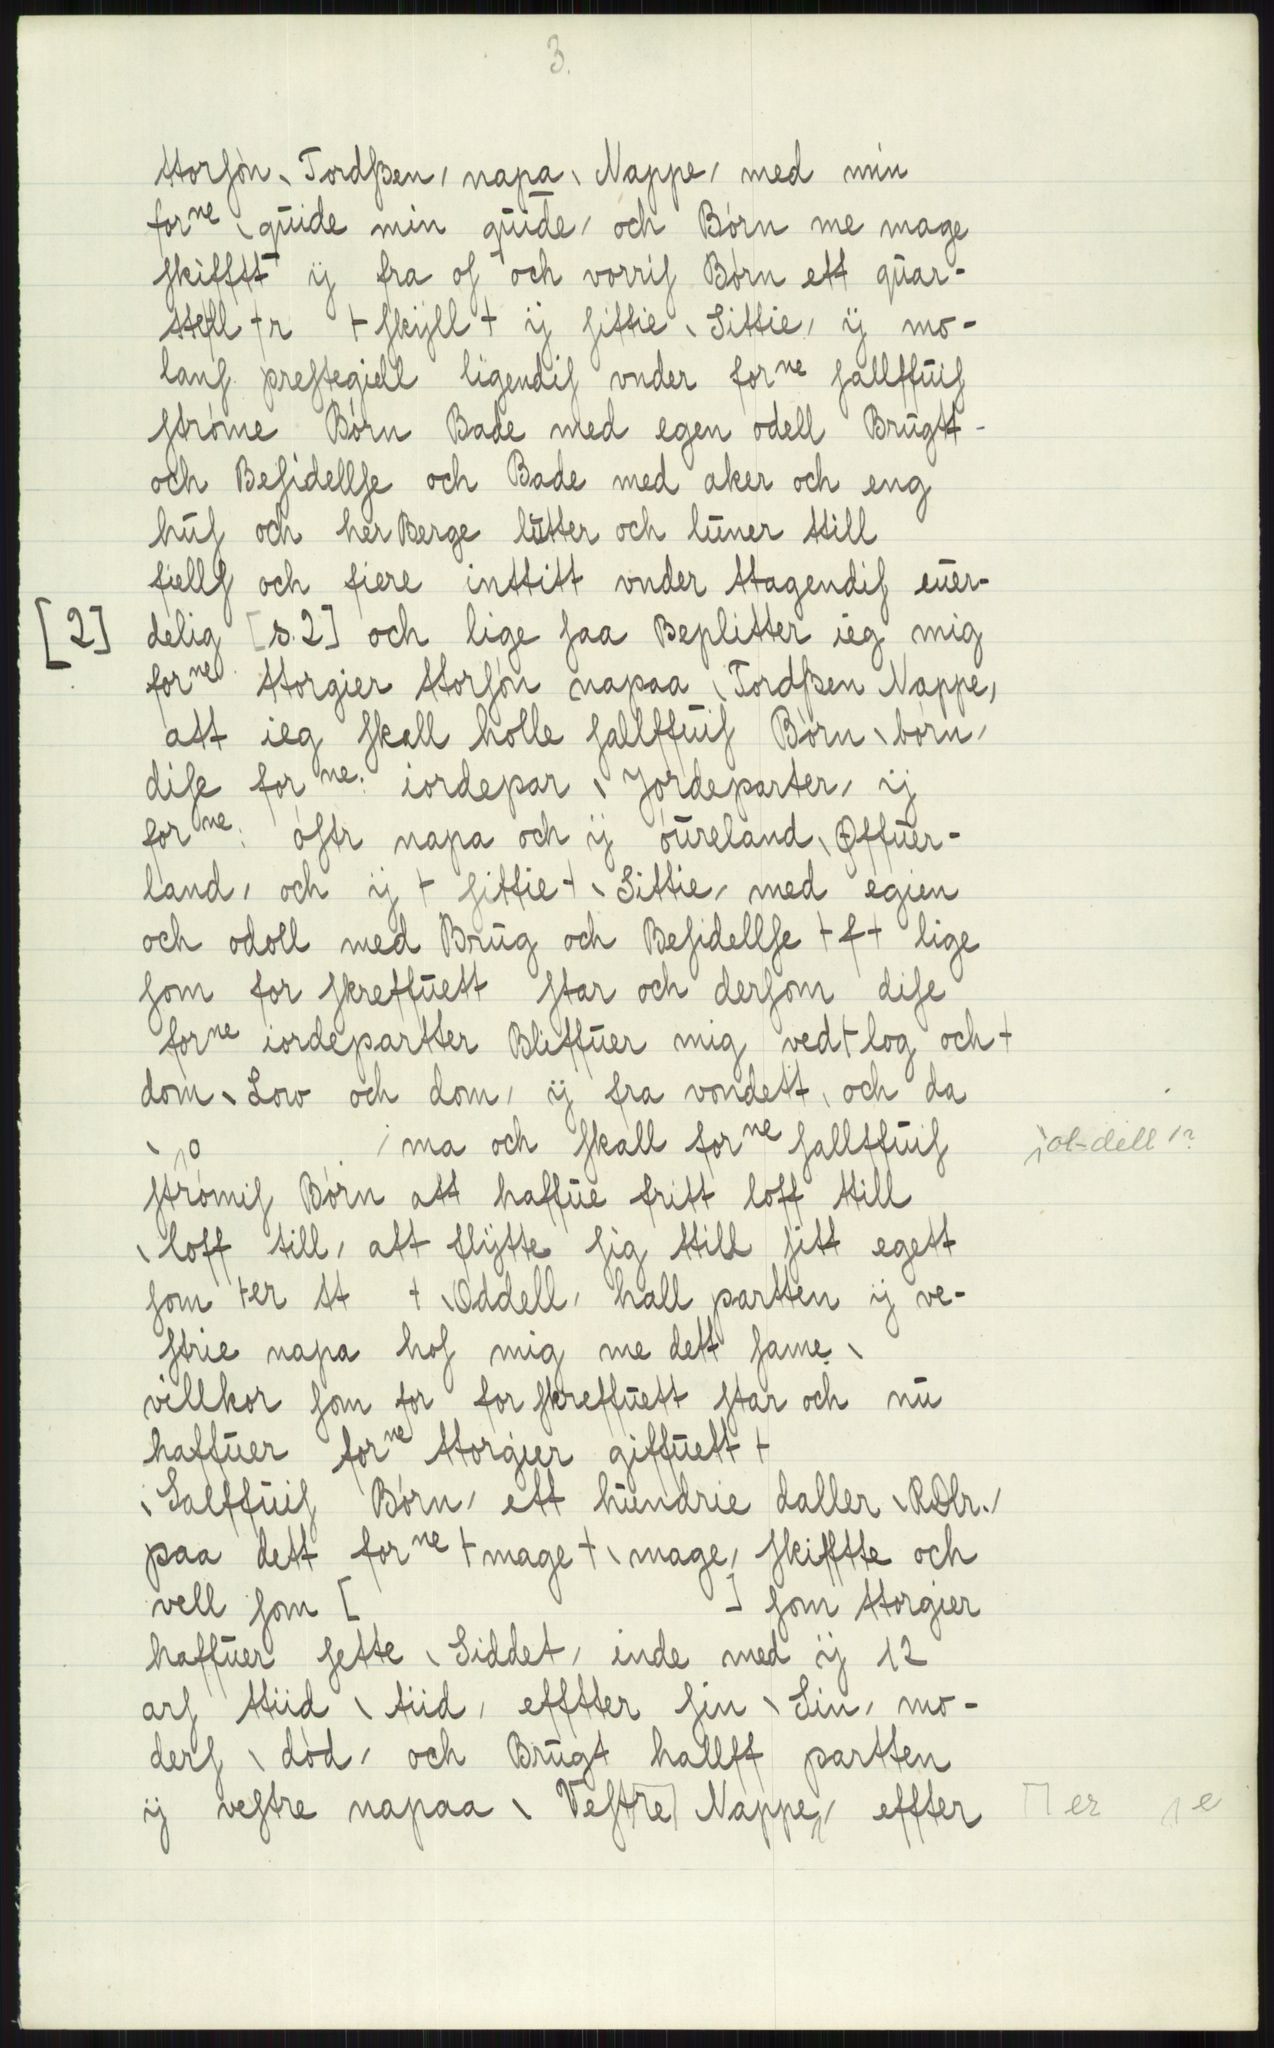 3.
ttorſøn \ Tordſsen / napa \ Nappe / med min
forne \ quide min quide / och Børn me mage
ſkifftt ÿ fra oſ och vorriſ Børn ett quar-
ttell + r + ſkÿll + ÿ ſittie \ Sittie / ÿ mo-
lanſ preſtegiell ligendiſ vnder forne ſallffuiſ
ſtrøme Børn Bade med egen odell Brugtt -
och Beſidellſe och Bade med aker och eng
huſ och her Berge lutter och luner ttill
fiellſ och fiere inttitt vnder ttagendiſ euer-
[2] delig [s.2] och lige ſaa Beplitter ieg mig
forne ttorgier ttorſøn napaa \ Tordſsen Nappe /
att ieg ſkall holle ſallffuiſ Børn \ børn /
diſe forne: iordepar \ Jordeparter / ÿ
forne: øſtr napa och ÿ øureland \ Øffuer-
land / och ÿ + ſittie + \ Sittie / med egien
och odoll med Brug och Beſidellſe + f + lige
ſom for ſkreffuett ſtar och derſom diſe
forne iordepartter Bliffuer mig ved + log och +
dom \ Low och dom / ÿ fra vondett och da
\ o / ma och ſkall forne ſallffuiſ \ ot-dell / ?
ſtrømiſ Børn att haffue fritt loff ttill
\ loff till / att flÿtte ſig ttill ſitt egett
ſom + er tt + \ Oddell / hall partten ÿ ve-
ſtrie napa hoſ mig me dett ſame \
villkor ſom for for ſkreffuett ſtar och nu
haffuer forne ttorgier giffuett +
\ Salffuiſ Børn / ett hundrie daller \ RDlr. /
paa dett forne + mage + \ mage / ſkifftte och
vell ſom [ ] ſom ttorgier
haffuer ſette \ Siddet / inde med ÿ 12
arſ ttiid \ tiid / effter ſin \ Sin / mo-
derſ \ død / och Brugt hallff partten
ÿ veſtre napaa \ Veſtre Nappe / effter er e